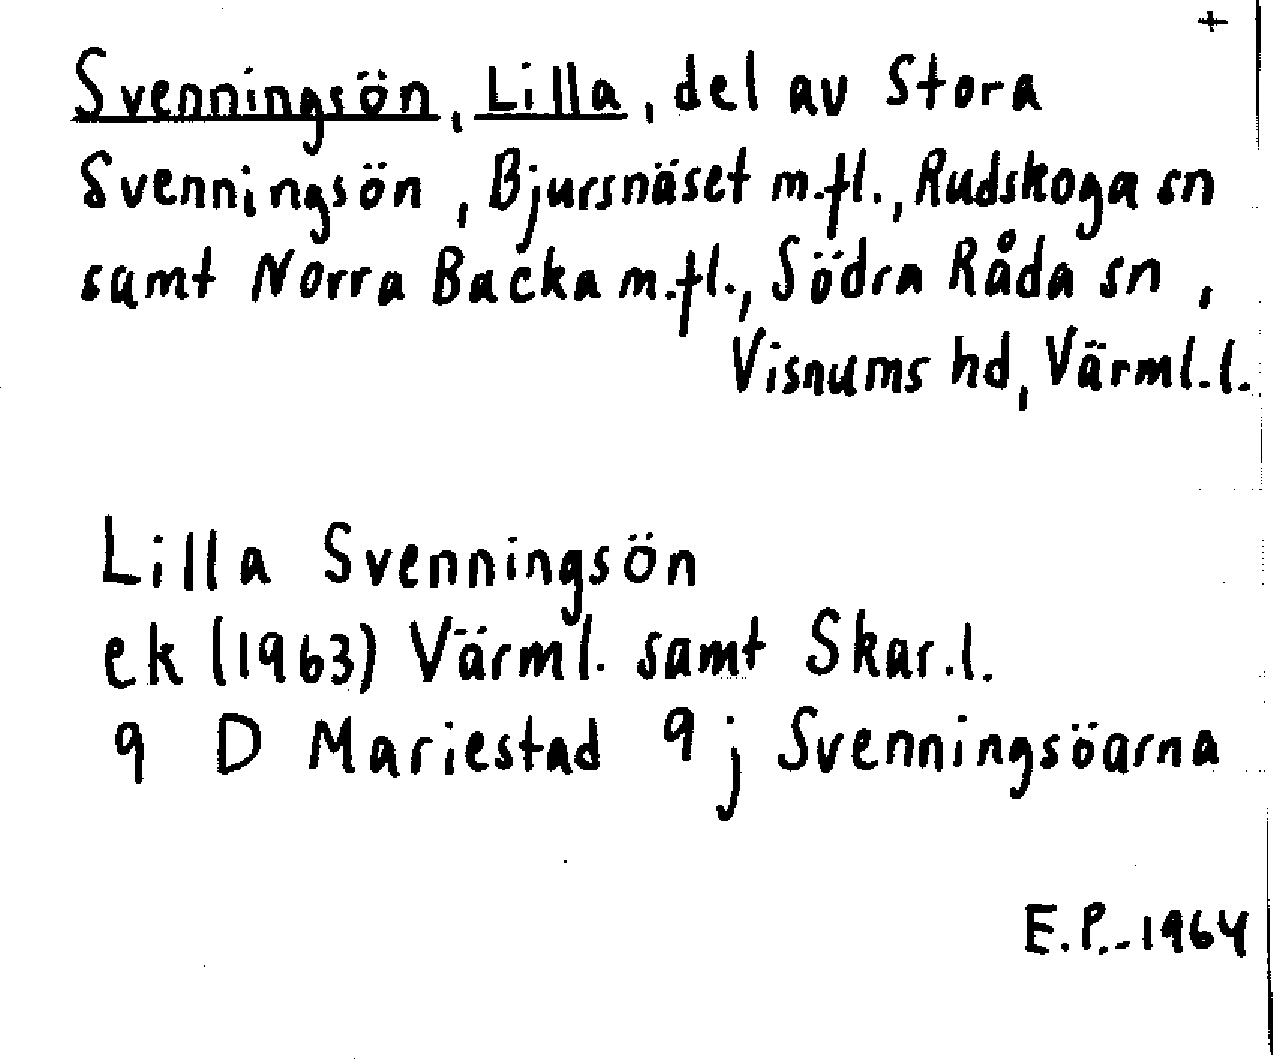 +
Svenningsön, Lilla, del av Stora
Svenningsön, Bjursnäset m.fl., Rudskoga sn
samt Norra Backa m.fl., Södra Råda sn,
Visnums hd, Värml.l.
Lilla Svenningsön
ek (1963) Värml. samt Skar.l.
9 D Mariestad 9 j Svenningsöarna
E.P. 1964